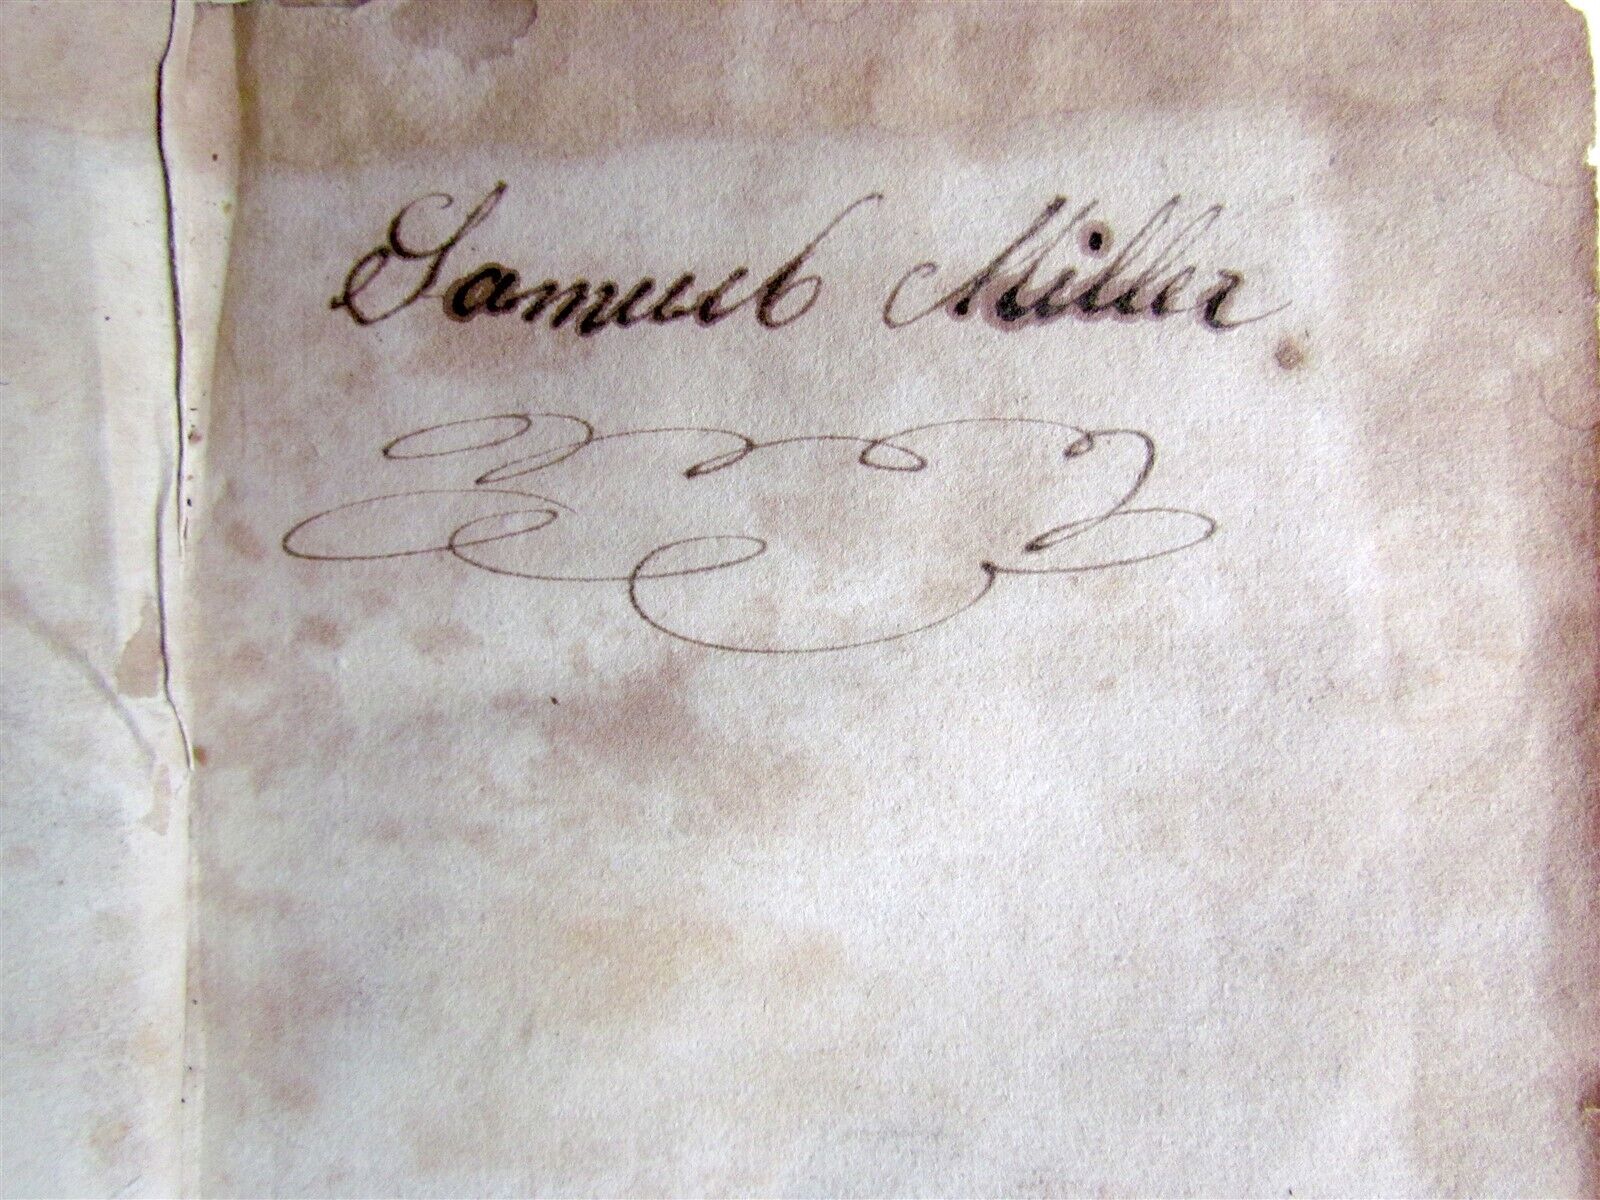 Samuel Miller.